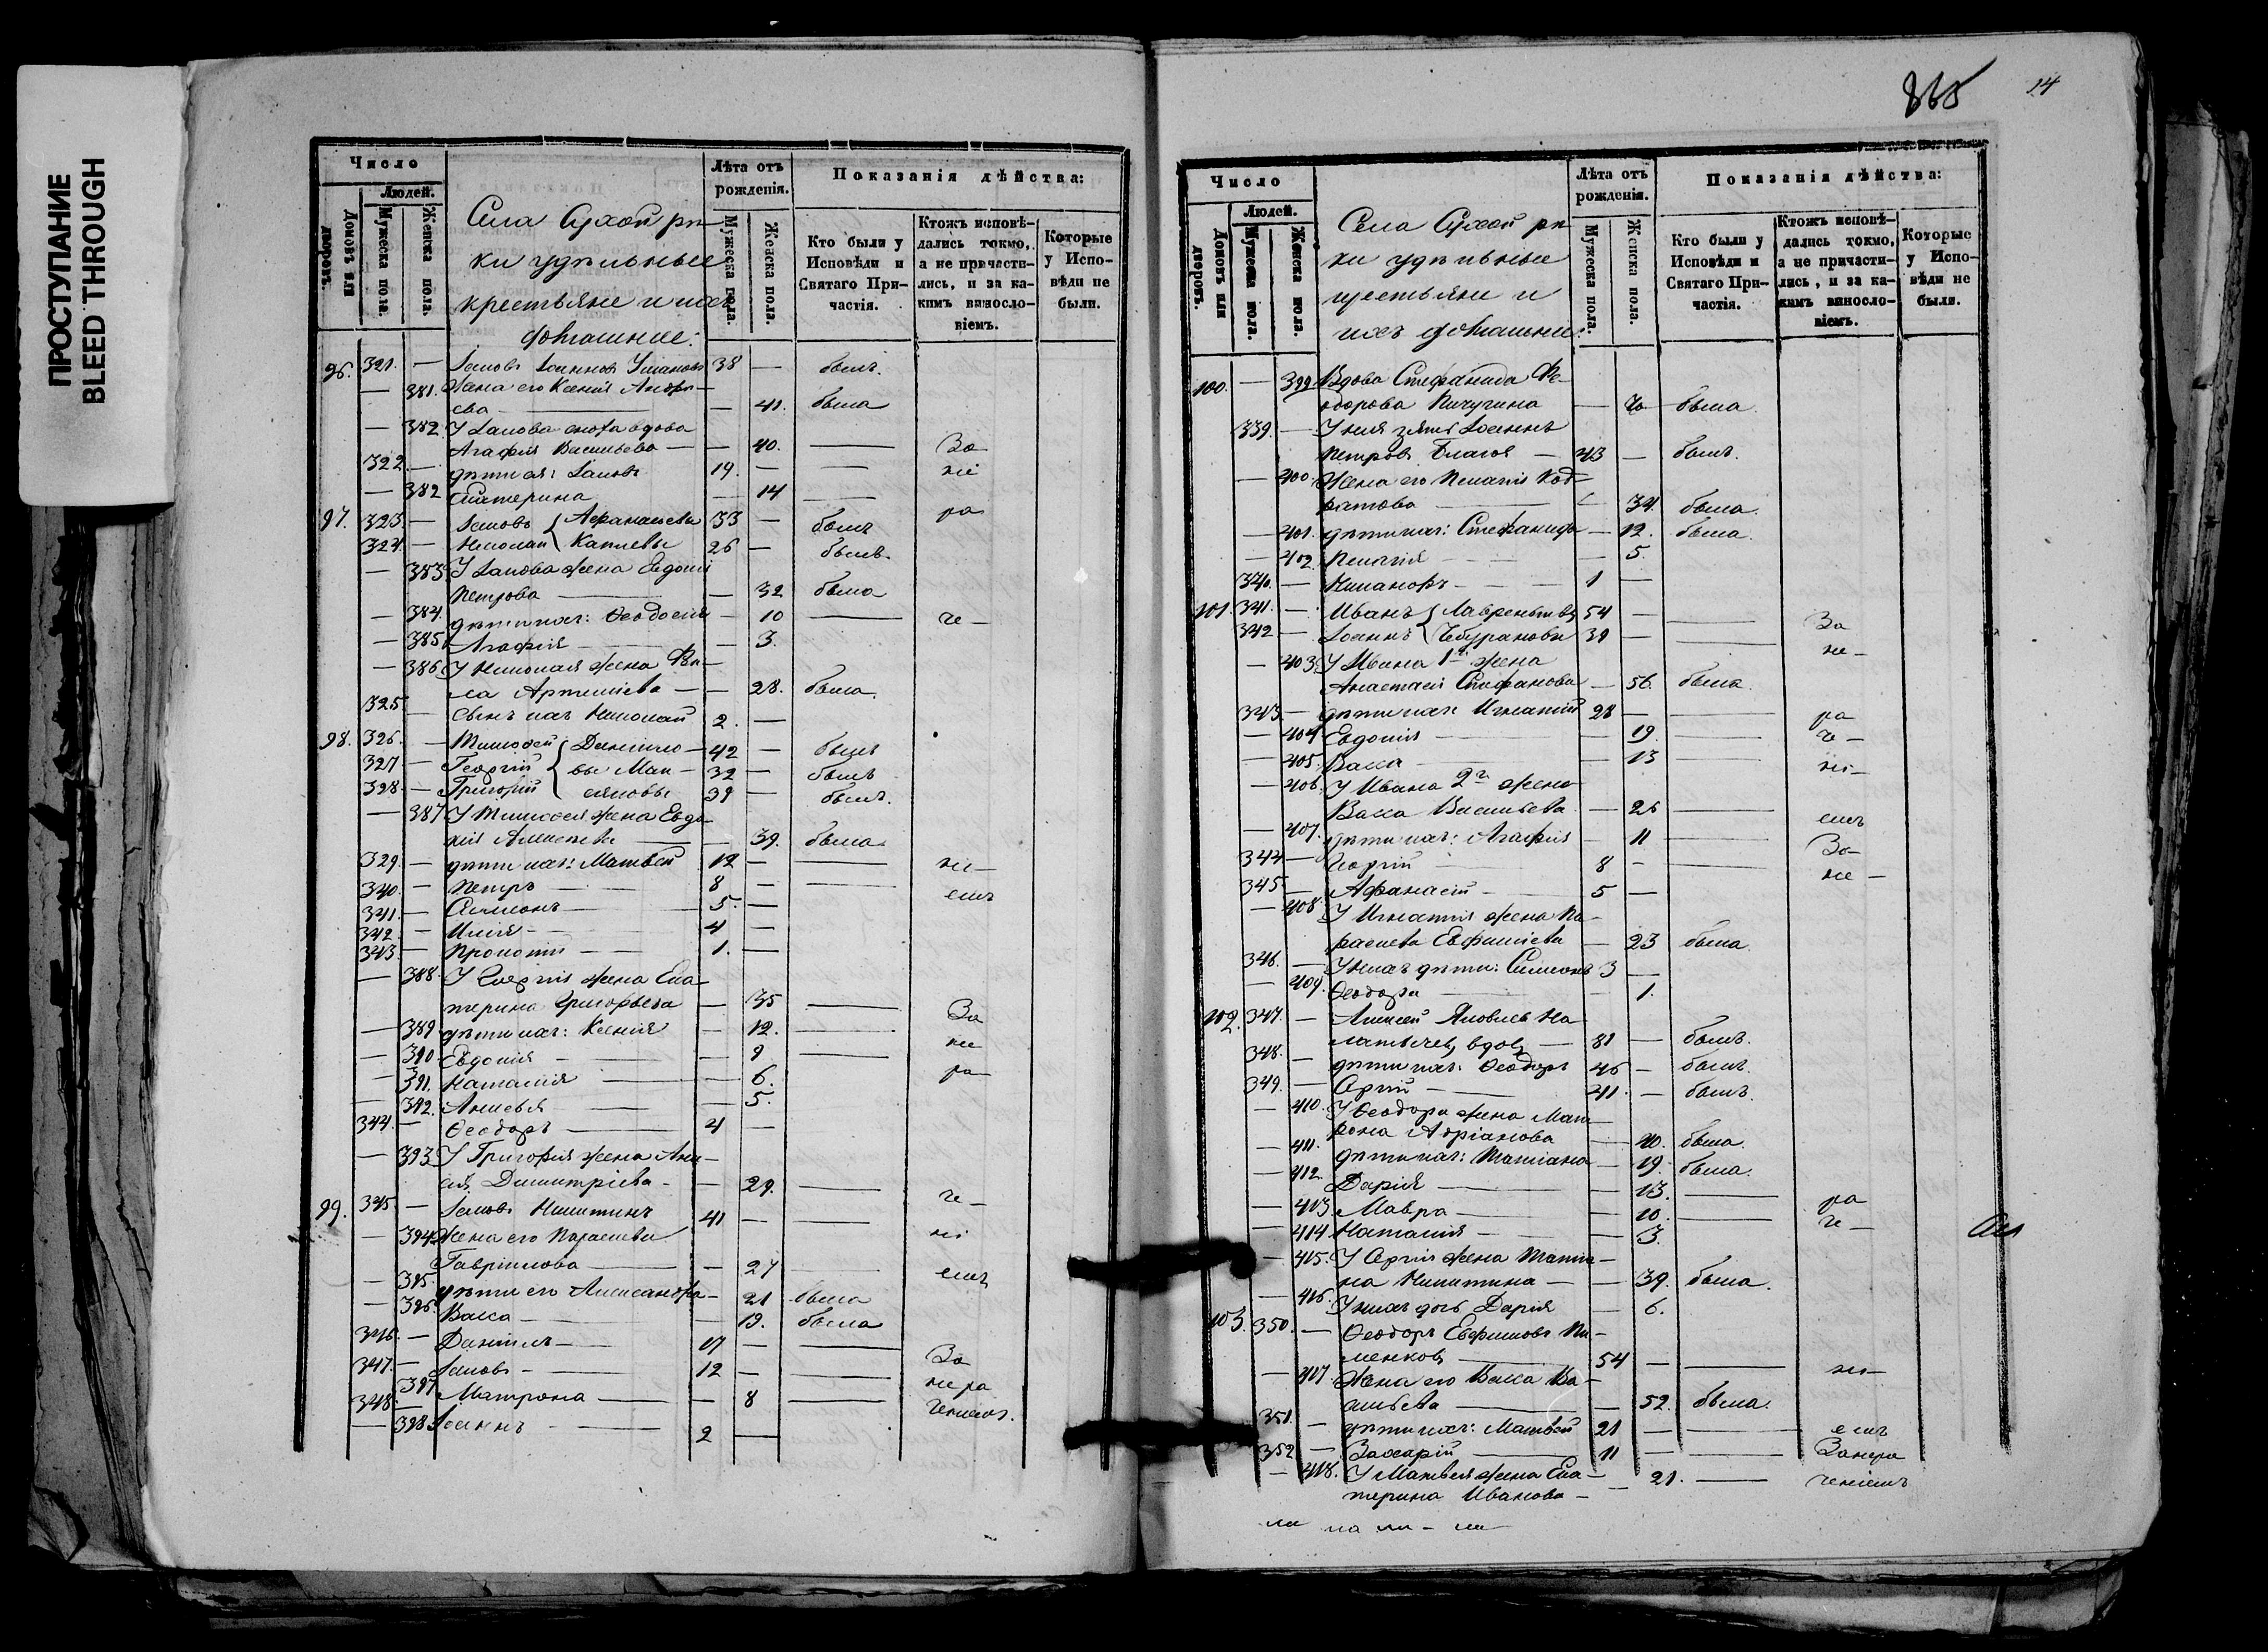 ПРОСТУПАНИЕ
BLEED THROUGH
Число
Людей.
Домовъ или дворовъ.
Мужеска пола.
Женска пола.
Села Сухой рѣ-
ки удѣльные
крестьяне и ихъ
домашние:
Лѣта отъ рожденія.
Мужеска пола.
Женска пола.
Показанія дѣйства:
Кто были у Исповѣди и Святаго Причастія.
Ктожъ исповѣдались токмо, а не причастились, и за какимъ винословіемъ.
Которые у Исповѣди не были.
96. 321. — Іаковъ Іоанновъ 38 — былъ.
— 381. Жена его Ксенія Андре-
ева — 41. была
— 382 У Іакова сноха вдова
Агафія Васильева — 40. — За
322. — дѣти ея: Іаковъ 19. — — не
— 382 Екатерина — 14 —
ра
97. 323. — Іаковъ Афанасьевы 33 — былъ
324. — Николай 26 — былъ.
— 383 У Іакова жена Евдокія
Петрова — 32 была
— 384. дѣти ихъ: Ѳеодосія — 10 — че —
— 385 Агафія — 3.
— 386. У Николая жена
Артемьева — 28. была.
325 — сынъ ихъ Николай 2. —
98. 326. — Тимофей Данило- 42 — былъ
327 — Георгій вы 32 — былъ
328. — Григорій 39 — былъ.
— 387 У Тимофея жена Евдо-
кія Алексѣева — 39. была
329. — дѣти ихъ: Матвей 12 — — ні —
340. — Петръ 8 — — емъ
341. — Симеонъ 5. —
342. — Илія 4 —
343 — Прокопій 1. —
— 388. У Георгія жена Ека-
терина Григорьева — 35 — За
— 389 дѣти ихъ: Ксенія — 12. — не
— 390 Евдокія — 9 —
— 391. Наталія — 6. ра
— 392. Анисья — 5.
344. — Ѳеодоръ 4 —
— 393 У Григорія жена Ани-
сія Димитріева — 29. — че —
99. 345. — Іаковъ Никитинъ 41 — —
— 394 Жена его Параскева ні
Гавріилова — 27 —
— 395. дѣти его Александра — 21 была емъ
— 396. Васса — 19. была
346. — Даніилъ 17 — — За
347. — Іаковъ 12 — —
— 397 Матрона — 8 — не ра
348. — ченіемъ.
— 398 Іоаннъ 2 —
865
14
Число
Людей.
Домовъ или дворовъ.
Мужеска пола.
Женска пола.
Села Сухой рѣ
ки удѣльные
крестьяне и
ихъ домашние:
Лѣта отъ рожденія.
Мужеска пола.
Женска пола.
Показанія дѣйства:
Кто были у Исповѣди и Святаго Причастія.
Ктожъ исповѣдались токмо, а не причастились, и за какимъ винословіемъ.
Которые у Исповѣди не были.
100. — 399 Вдова Стефанида Ѳе-
одорова Пичугина — 70 была.
339. — У нея зять Іоаннъ
Петровъ 43 — былъ.
— 400. Жена его Пелагія Код-
ратова — 34. была.
— 401. дѣти ихъ: Стефанида — 12. была.
— 402. Пелагія — 5.
340. — Никаноръ 1 —
101 341. — Иванъ Лаврентьевы 54 — — За
342 — Іоаннъ 39 —
— 403. У Ивана 1я жена не —
Анастасія Стефанова — 56. была.
343 — дѣти ихъ Игнатій 28 — — ра
— 404 Евдокія — 19. — че —
— 405. Васса — 13 — ні —
— 406. У Ивана 2я жена
Васса Васильева — 26 — емъ
— 407. дѣти ихъ: Агафія — 11 — За
344 — Георгій 8 — — не —
345 — Афанасій 5 —
— 408 У Игнатія жена Па-
раскева Евфиміева — 23 была.
346. — У нихъ дѣти: Симеонъ 3 —
— 409. Ѳеодора — 1.
102. 347. — Алексей Яковлевъ
вдовъ — 81 — былъ.
348. — дѣти ихъ: Ѳеодоръ 46 — былъ.
349. — Сергій 41. — былъ.
— 410. У Ѳеодора жена Мат-
рона Адріанова — 40. была.
— 411. дѣти ихъ: Татіана — 19. была.
— 412. Дарія — 13. — ра
— 413 Мавра — 10. — че —
— 414 Наталія — 3.
— 415. У Сергія жена Татіа-
на Никитина — 39. была.
— 416. У нихъ дочь Дарія — 6.
103. 350. — Ѳеодоръ Евфимовъ
54 — — ні —
— 417. Жена его Васса Ва-
сильева — 52. была.
351. — дѣти ихъ: Матвей 21 — — емъ
352 — Захарій 11 — Занера
— 418. У Матвея жена Ека- — 21. — ченіемъ
терина Иванова —